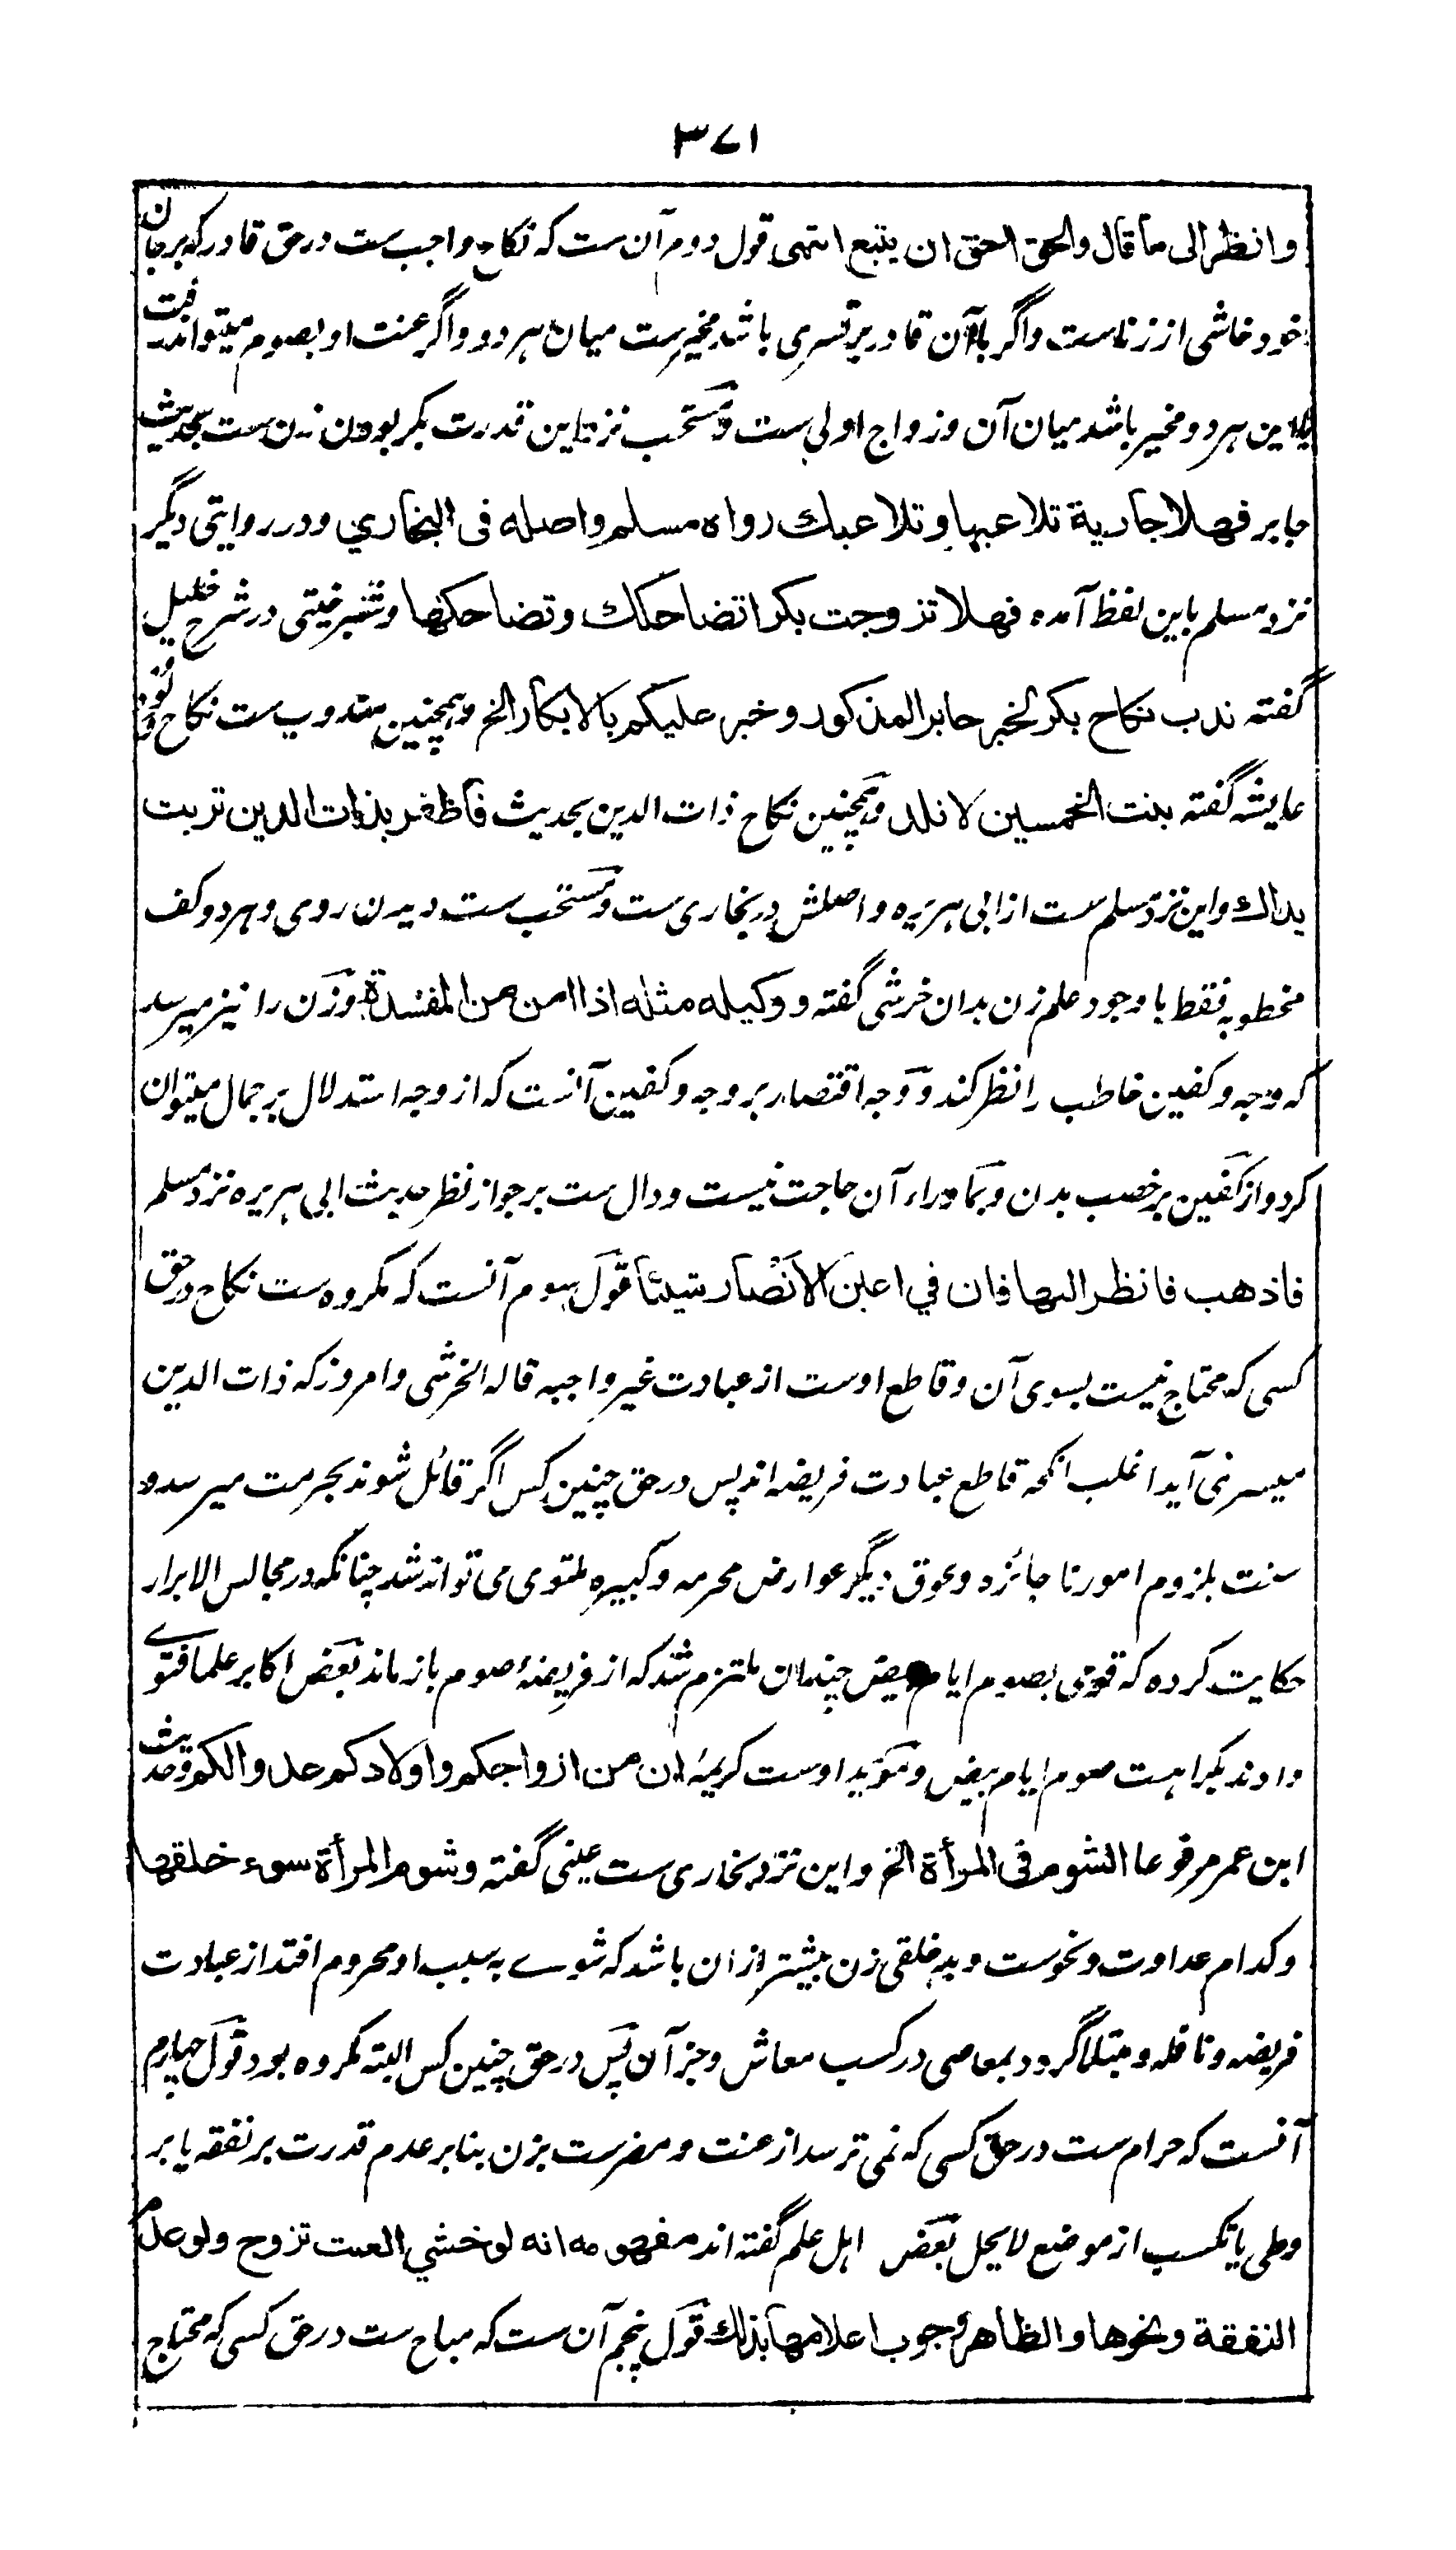 ۳۷۱
وانظر الی ما قال والحق احق ان یتبع انتهی قول دوم آن ست که نکاح واجب ست در حق قادر که بر جان
خود خاشی از زناست واگر با آن قادر بر تسری باشد مخیر ست میان هر دو واگر عنت او بصوم میتواند رفت
این هر دو مخیر باشد میان آن وزواج اولی ست ومستحب نزد این قدرت بکر بودن زن ست بحدیث
جابر فهلا جاریة تلاعبها وتلاعبك رواه مسلم واصله فی البخاري ودر روایتی دیگر
نزد مسلم باین لفظ آمده فهلا تزوجت بکرا تضاحكك وتضاحکها وشبرخیتی در شرح خلیل
گفته ندب نکاح بکر لخبر جابر المذکور وخبر علیکم بالابکار الخ وهمچنین مندوب ست نکاح
عایشه گفته بنت الخمسین لا تلد وهمچنین نکاح ذات الدین بحدیث فاظفر بذات الدین تربت
یداك واین نزد مسلم ست از ابی هریره واصلش در بخاری ست ومستحب ست دیدن روی وهر دو کف
مخطوبه فقط با وجود علم زن بدان خرشی گفته ووکیله مثله اذا امن من المفسدة وزن را نیز میرسد
که وجه وکفین خاطب را نظر کند ووجه اقتصار بر وجه وکفین آنست که از وجه استدلال بر جمال میتوان
کرد واز کفین بر خصب بدن وبما وراء آن حاجت نیست ودال ست بر جواز نظر حدیث ابی هریره نزد مسلم
فاذهب فانظر الیها فان في اعین الانصار شیئا قول سوم آنست که مکروه ست نکاح در حق
کسی که محتاج نیست بسوی آن وقاطع اوست از عبادت غیر واجبه قاله الخرشی وامروز که ذات الدین
میسر نمی آید اغلب انکحه قاطع عبادت فریضه اند پس در حق چنین کس اگر قائل شوند بحرمت میرسد و
سنت بلزوم امور ناجائزه ولحوق دیگر عوارض محرمه وکبیره ملتوی می تواند شد چنانکه در مجالس الابرار
حکایت کرده که قومی بصوم ایام بیض چندان ملتزم شد که از فریضهٔ صوم باز ماند بعض اکابر علما فتوے
دادند بکراهت صوم ایام بیض ومؤید اوست کریمهٔ ان من ازواجکم واولادکم عدوا لکم وحدیث
ابن عمر مرفوعا الشوم فی المرأة الخ واین نزد بخاری ست عینی گفته وشوم المرأة سوء خلقها
وکدام عداوت ونحوست وبد خلقی زن بیشتر ازان باشد که شوے به سبب او محروم افتد از عبادت
فریضه ونافله ومبتلا گردد بمعاصی در کسب معاش وجز آن پس در حق چنین کس البته مکروه بود قول چهارم
آنست که حرام ست در حق کسی که نمی ترسد از عنت ومضر ست بزن بنا بر عدم قدرت بر نفقه یا بر
وطی یا تکسب از موضع لا یحل بعض اهل علم گفته اند مفهومه انه لو خشي العنت تزوج ولو عدم
النفقة ونحوها والظاهر وجوب اعلامها بذلك قول پنجم آن ست که مباح ست در حق کسی که محتاج